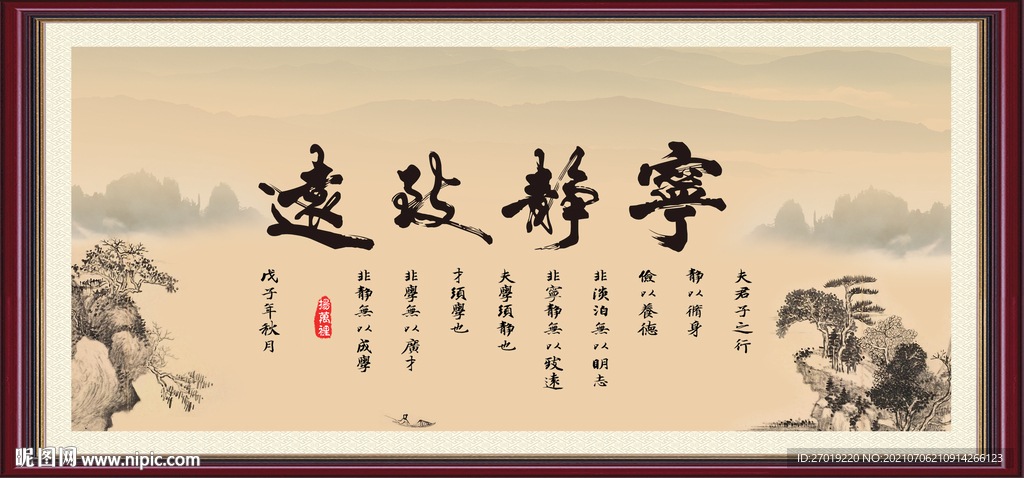 寧靜致遠
夫君子之行
靜以脩身
儉以養德
非淡泊無以明志
非寧靜無以致遠
夫學須靜也
才須學也
非學無以廣才
非靜無以成學
楊萬裡
戊子年秋月
昵图网 www.nipic.com
ID:27019220 NO:20210706210914266123